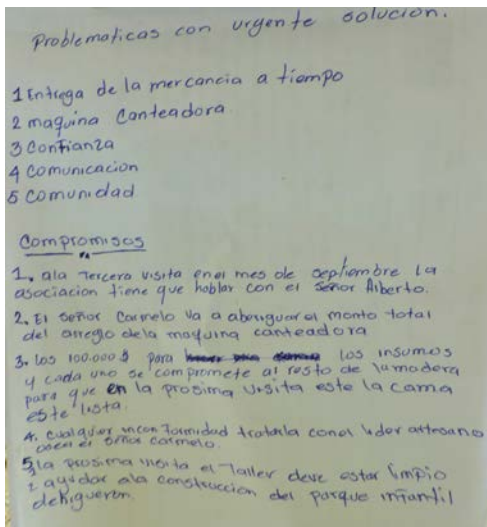 Problematicas con urgente solucion.
1 Entrega de la mercancia a tiempo
2 maquina Canteadora
3 Confianza
4 Comunicacion
5 comunidad
Compromisos
1. ala Tercera visita en el mes de septiembre la
asociacion tiene que hablar con el señor Alberto.
2. El señor Carmelo va a aberiguar el monto total
del arreglo dela maquina canteadora
3. Los 100.000 $ para los insumos
y cada uno se compromete al resto de lamadera
para que en la prosima visita este la cama
este lista.
4. cualquier inconformidad tratarla con el lider artesano
el señor carmelo.
5 la prosima visita el Taller deve estar limpio
ayudar ala construccion del parque infantil